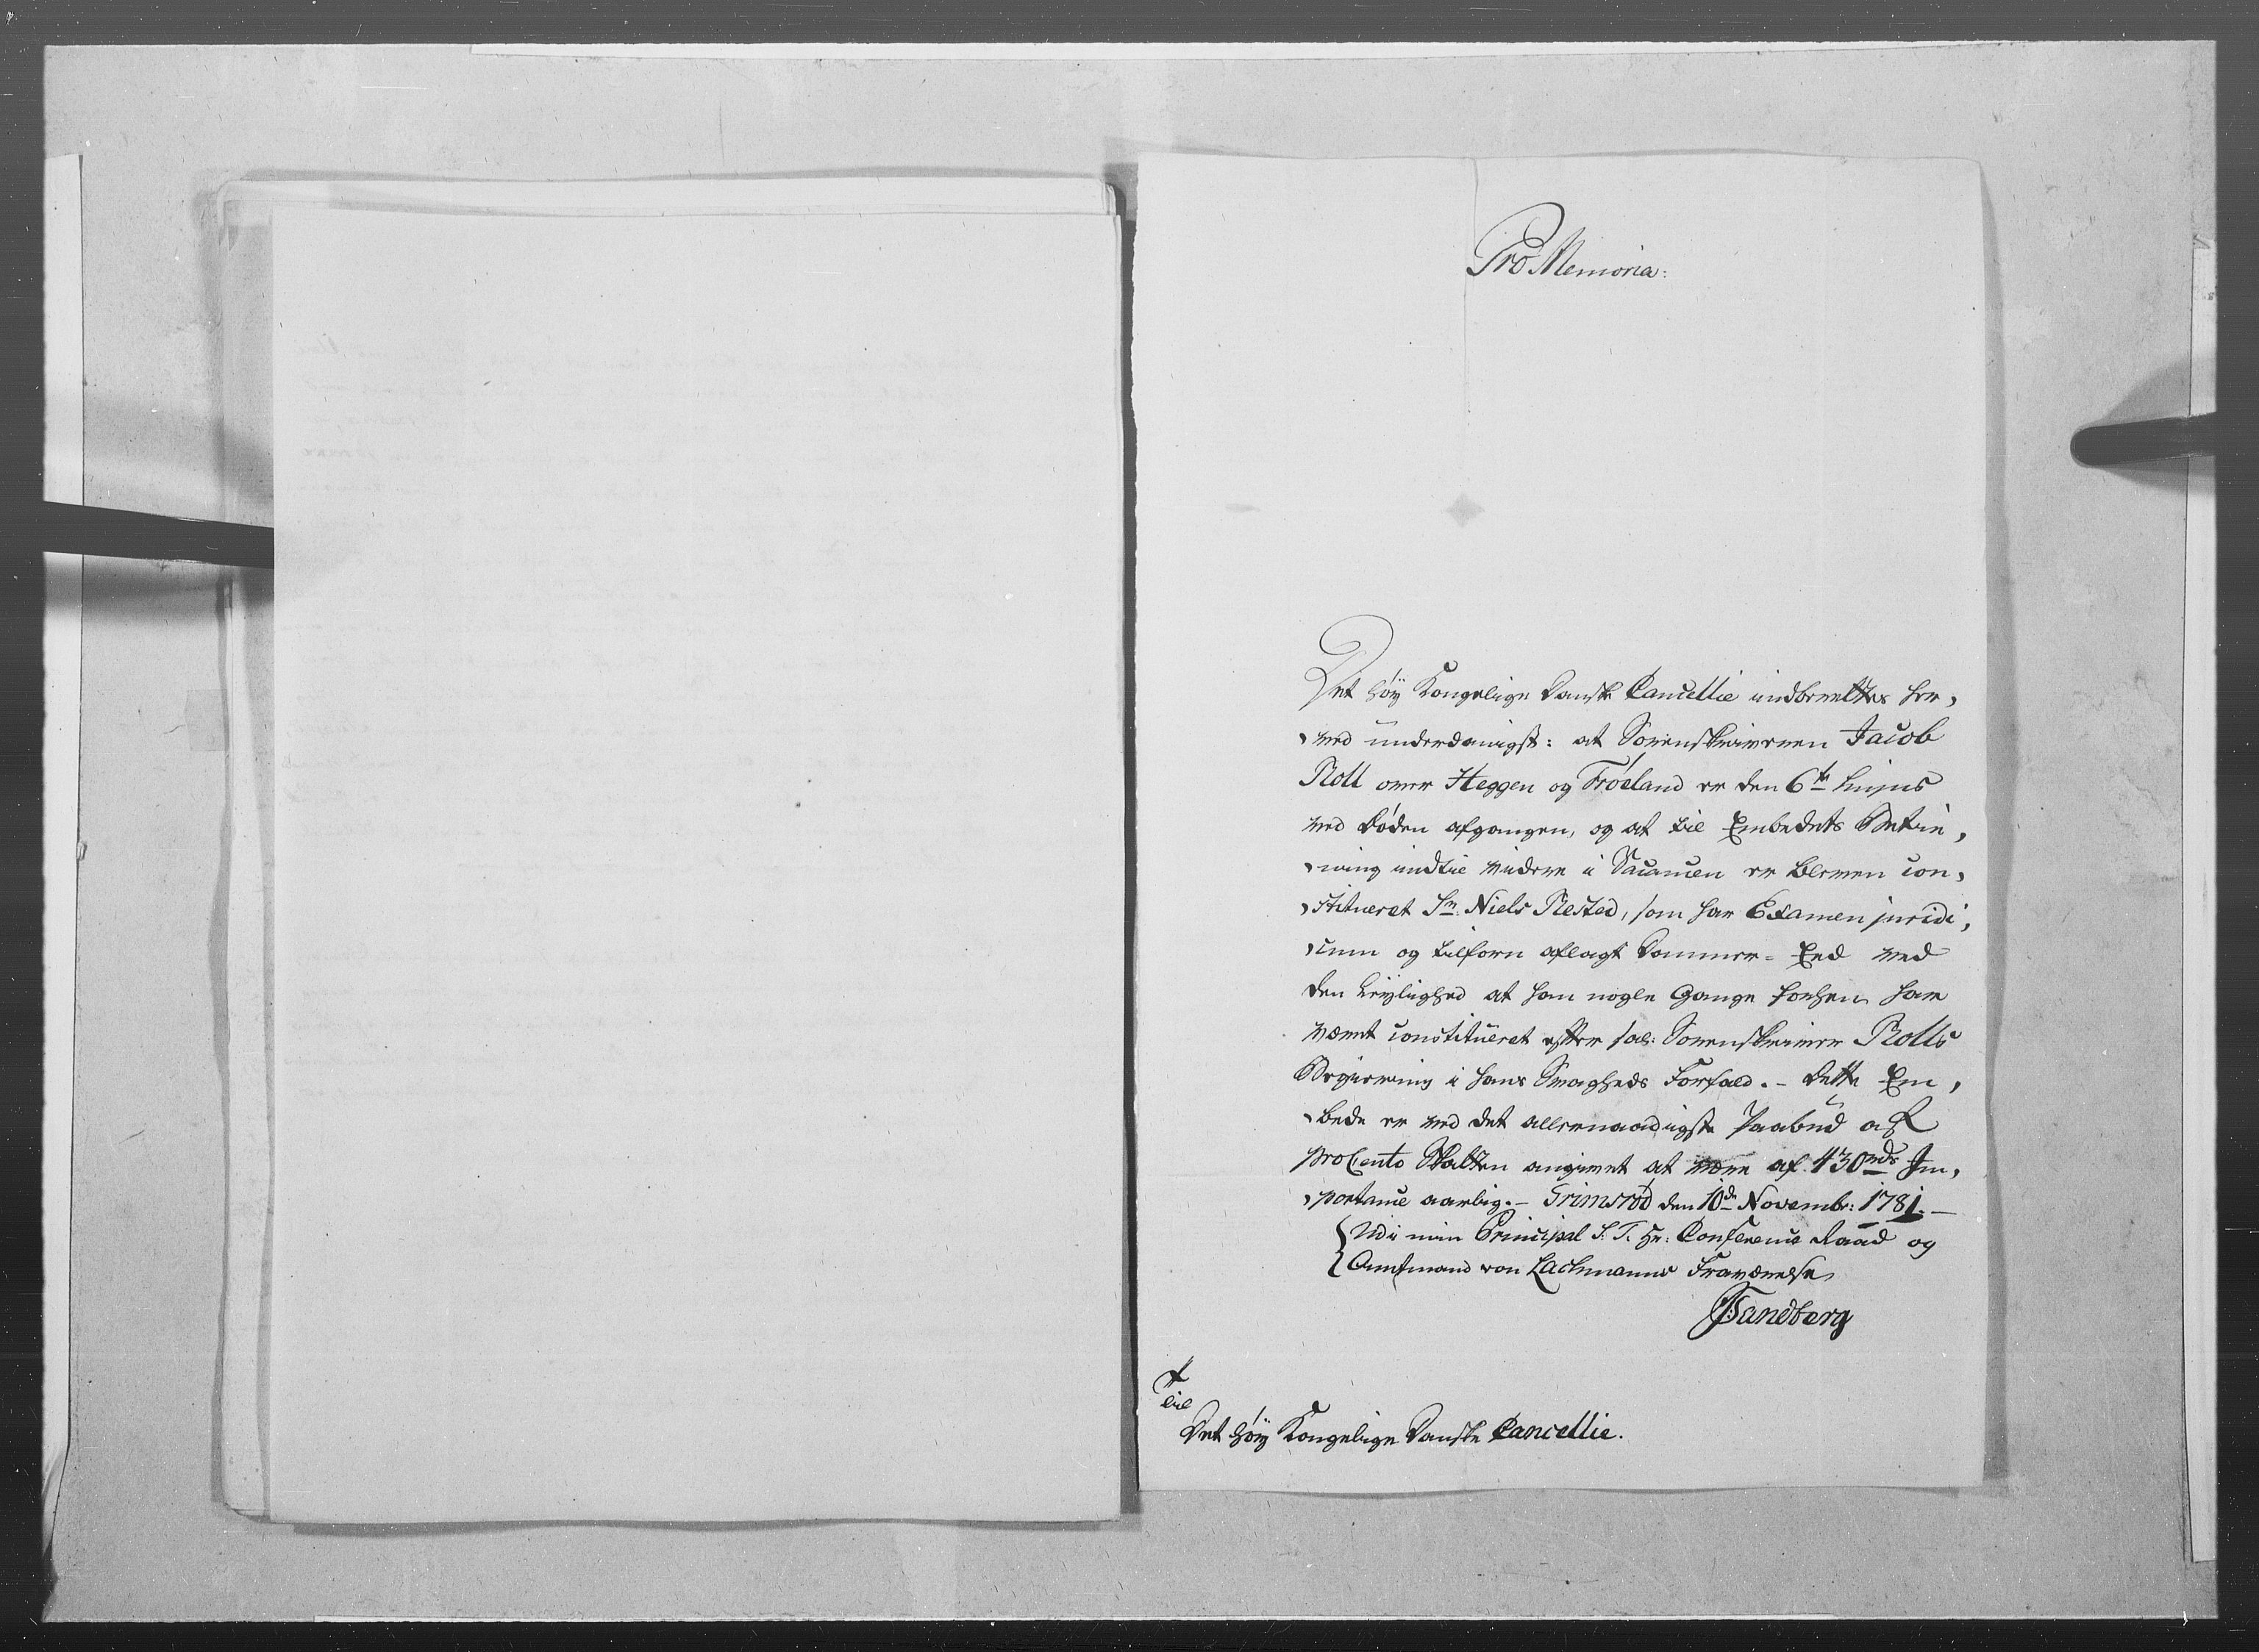 Pro Memoria:
Det höy Kongelige Danske Cancellie indberettes her,
,ved underdanigst: at Sorenskriveren Jacob
Roll over Heggen og Frøeland er den 6te hujus
ved Døden afgangen, og at til Embedets Betie,
,ning indtil videre i Vacancen er bleven con,
,stitueret Sr. Niels Rested, som har Examen juridi,
,cum og tilforn aflagt Dommer-Eed ved
den Leylighed at han nogle Gange forhen har
været constitueret efter sal: Sorenskriver Rolls
Begiering i hans Svagheds Forfald. - Dette Em,
,bede er ved det allernaadigste Paabud af
proCento Skatten angivet at være af 430 rdr Im,
,portance aarlig. - Grimsrød den 10de Novembr: 1781. -
Udi min Principal S. T. Hr: Conference Raad og
Amtmand von Lachmanns Fraværelse,
Sandberg
Til
Det höy Kongelige Danske Cancellie.